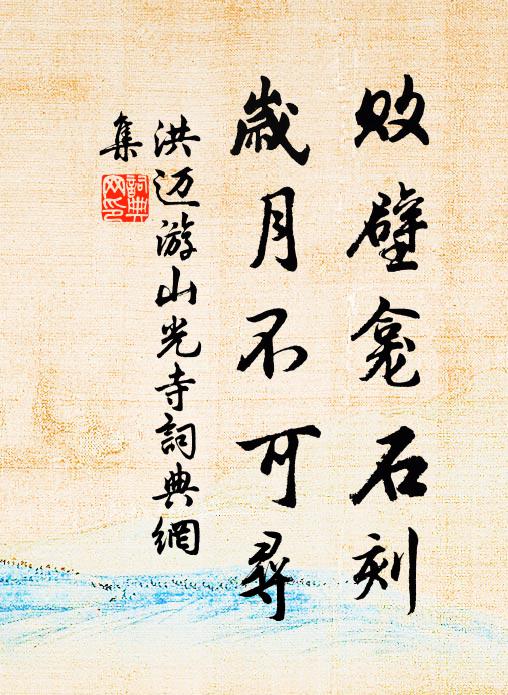 败壁龛石刻
歲月不可尋
洪迈游山光寺詞典網
集
詞典網印